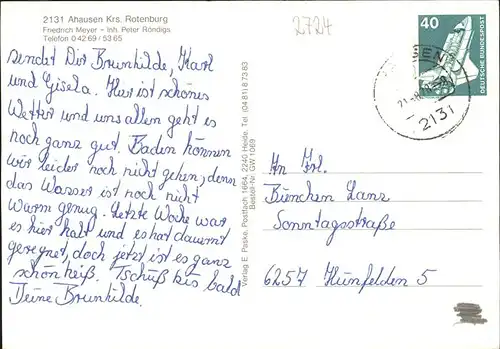 2131 Ahausen Krs. Rotenburg
Friedrich Meyer – Inh. Peter Röndigs
Telefon 0 42 69 / 53 65
sendet Dir Brunhilde, Karl
und Gisela. Hier ist schönes
Wetter und uns allen geht es
noch ganz gut. Baden können
wir leider noch nicht gehen, denn
das Wasser ist noch nicht
warm genug. Letzte Woche war
es hier kalt und es hat dauernd
geregnet, doch jetzt ist es ganz
schön heiß. Tschüß bis bald
Deine Brunhilde.
Verlag E. Paske, Postfach 1664, 2240 Heide, Tel. (04 81) 8 73 83
Bestell-Nr. GW 1069
2724
40
DEUTSCHE BUNDESPOST
2131
An Frl.
Bienchen Lanz
Sonntagsstraße
6257 Hünfelden 5